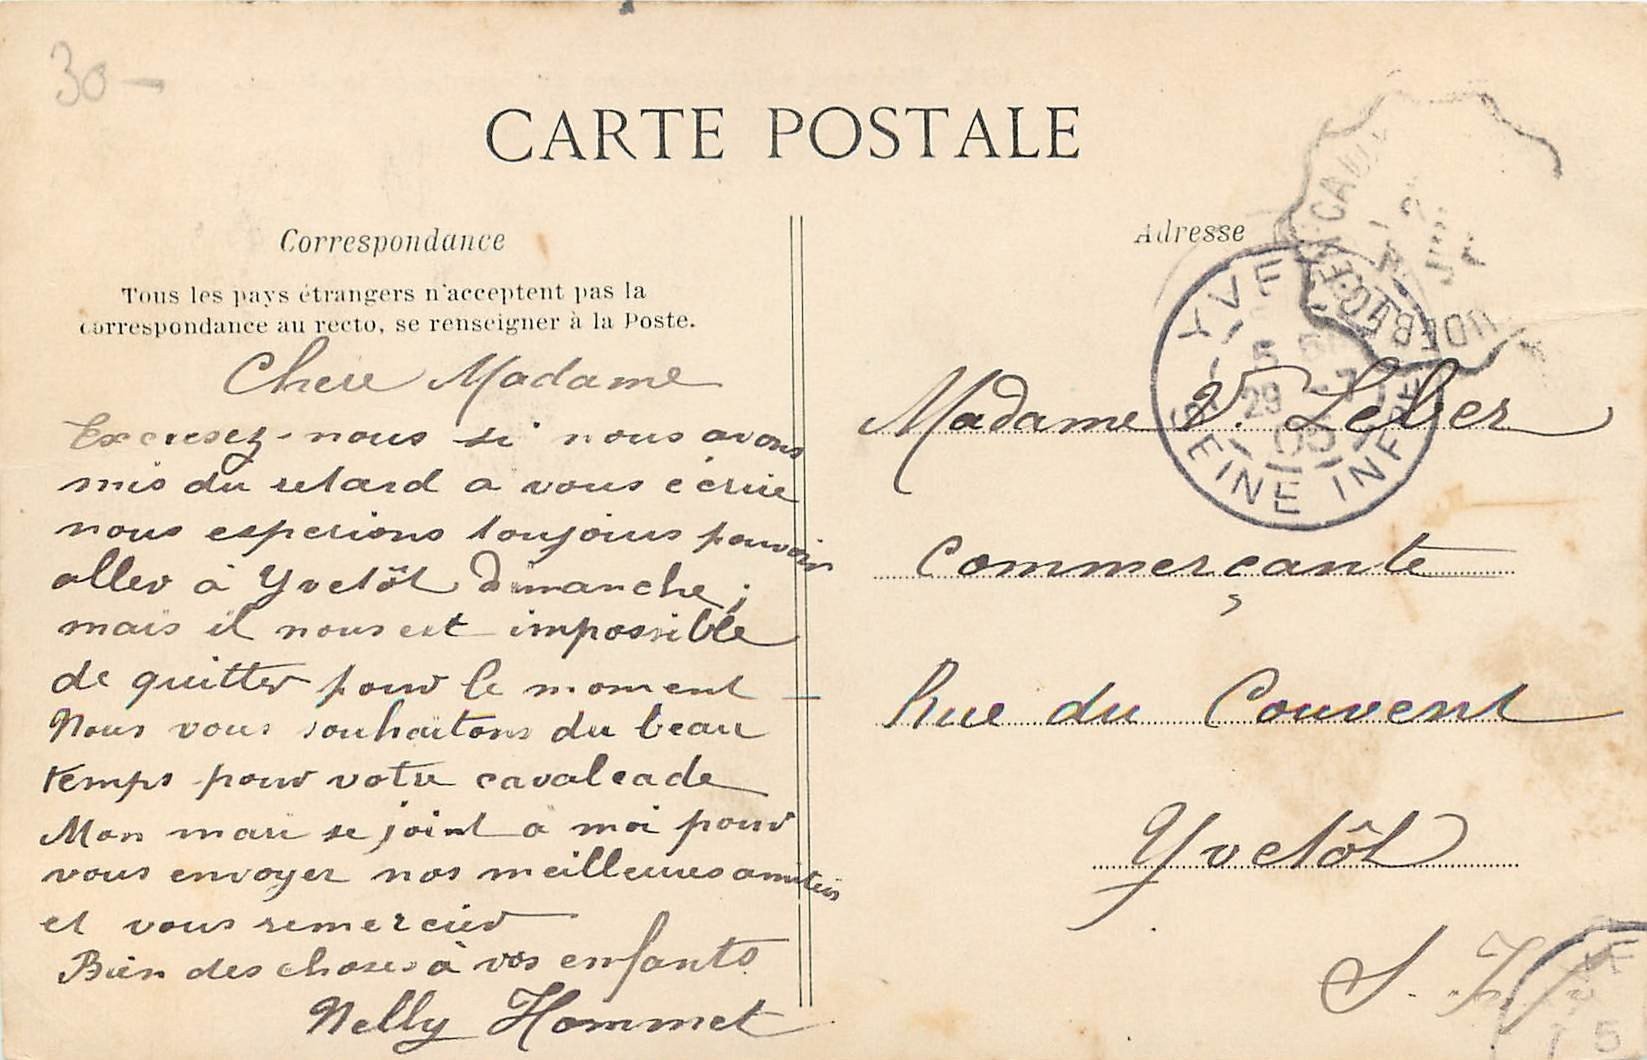 30 -
CARTE POSTALE
Correspondance
Tous les pays étrangers n'acceptent pas la
correspondance au recto, se renseigner à la Poste.
Chere Madame
Excusez-nous si nous avons
mis du retard a vous écrire
nous esperions toujours pouvoir
aller à Yvetôt Dimanche;
mais il nous est impossible
de quitter pour le moment
Nous vous souhaitons du beau
temps pour votre cavalcade
Mon mari se joint a moi pour
vous envoyer nos meilleures amitiés
et vous remercier
Bien des choses à vos enfants
Nelly Hommet
Adresse
Madame V. Leber
Commerçante
Rue du Couvent
Yvetôt
S. I.
YVE
5
29 -7
05
SEINE INFRE
CAUX
UDEBEC
YVE
15